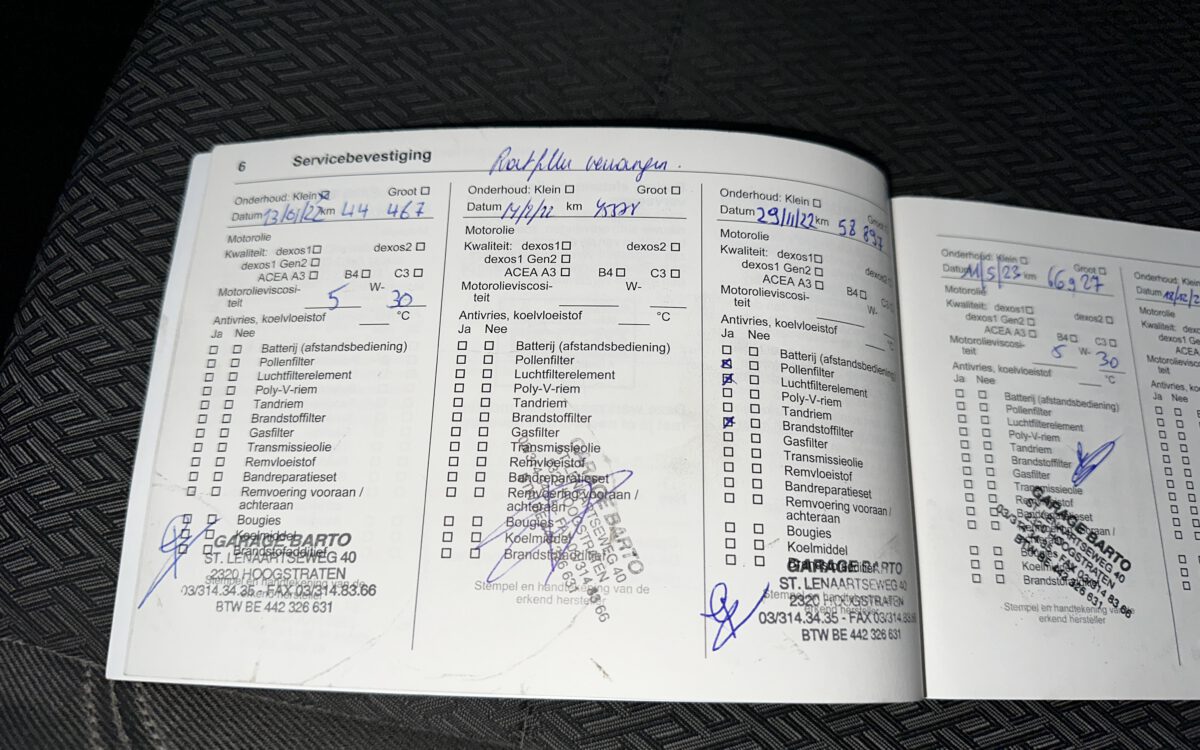 6 Servicebevestiging
Onderhoud: Klein ☒ Groot ☐
Datum 13/01/22 km 44 467
Motorolie
Kwaliteit: dexos1 ☐ dexos2 ☐
dexos1 Gen2 ☐
ACEA A3 ☐ B4 ☐ C3 ☐
Motorolieviscosi-
teit 5 W- 30
Antivries, koelvloeistof °C
Ja Nee
☐ ☐ Batterij (afstandsbediening)
☐ ☐ Pollenfilter
☐ ☐ Luchtfilterelement
☐ ☐ Poly-V-riem
☐ ☐ Tandriem
☐ ☐ Brandstoffilter
☐ ☐ Gasfilter
☐ ☐ Transmissieolie
☐ ☐ Remvloeistof
☐ ☐ Bandreparatieset
☐ ☐ Remvoering vooraan /
achteraan
☐ ☐ Bougies
☐ ☐ Koelmiddel
☐ ☐ Brandstofadditief
GARAGE BARTO
ST. LENAARTSEWEG 40
2320 HOOGSTRATEN
03/314.34.35 - FAX 03/314.83.66
BTW BE 442 326 631
Onderhoud: Klein ☐ Groot ☐
Datum km
Motorolie
Kwaliteit: dexos1 ☐ dexos2 ☐
dexos1 Gen2 ☐
ACEA A3 ☐ B4 ☐ C3 ☐
Motorolieviscosi-
teit W-
Antivries, koelvloeistof °C
Ja Nee
☐ ☐ Batterij (afstandsbediening)
☐ ☐ Pollenfilter
☐ ☐ Luchtfilterelement
☐ ☐ Poly-V-riem
☐ ☐ Tandriem
☐ ☐ Brandstoffilter
☐ ☐ Gasfilter
☐ ☐ Transmissieolie
☐ ☐ Remvloeistof
☐ ☐ Bandreparatieset
☐ ☐ Remvoering vooraan /
achteraan
☐ ☐ Bougies
☐ ☐ Koelmiddel
☐ ☐ Brandstofadditief
Stempel en handtekening van de
erkend hersteller
GARAGE BARTO
ST. LENAARTSEWEG 40
2320 HOOGSTRATEN
Onderhoud: Klein ☐ Groot
Datum 29/11/22 km 58 897
Motorolie
Kwaliteit: dexos1 ☐ dexos2
dexos1 Gen2 ☐
ACEA A3 ☐ B4 ☐ C3
Motorolieviscosi-
teit W-
Antivries, koelvloeistof
Ja Nee
☐ ☐ Batterij (afstandsbediening)
☒ ☐ Pollenfilter
☒ ☐ Luchtfilterelement
☐ ☐ Poly-V-riem
☐ ☐ Tandriem
☒ ☐ Brandstoffilter
☐ ☐ Gasfilter
☐ ☐ Transmissieolie
☐ ☐ Remvloeistof
☐ ☐ Bandreparatieset
☐ ☐ Remvoering vooraan /
achteraan
☐ ☐ Bougies
☐ ☐ Koelmiddel
GARAGE BARTO
ST. LENAARTSEWEG 40
2320 HOOGSTRATEN
03/314.34.35 - FAX 03/314.83.66
BTW BE 442 326 631
Onderhoud: Klein ☐ Groot ☐
Datum 11/5/23 km 66927
Motorolie
Kwaliteit: dexos1 ☐ dexos2 ☐
dexos1 Gen2 ☐
ACEA A3 ☐ B4 ☐ C3 ☐
Motorolieviscosi-
teit 5 W- 30
Antivries, koelvloeistof °C
Ja Nee
☐ ☐ Batterij (afstandsbediening)
☐ ☐ Pollenfilter
☐ ☐ Luchtfilterelement
☐ ☐ Poly-V-riem
☐ ☐ Tandriem
☐ ☐ Brandstoffilter
☐ ☐ Gasfilter
☐ ☐ Transmissieolie
Stempel en handtekening van de
erkend hersteller
GARAGE BARTO
ST. LENAARTSEWEG 40
2320 HOOGSTRATEN
BTW BE 442 326 631
Onderhoud: Klein
Datum
Motorolie
Kwaliteit:
ACEA
Motorolieviscosi-
teit
Ja Nee